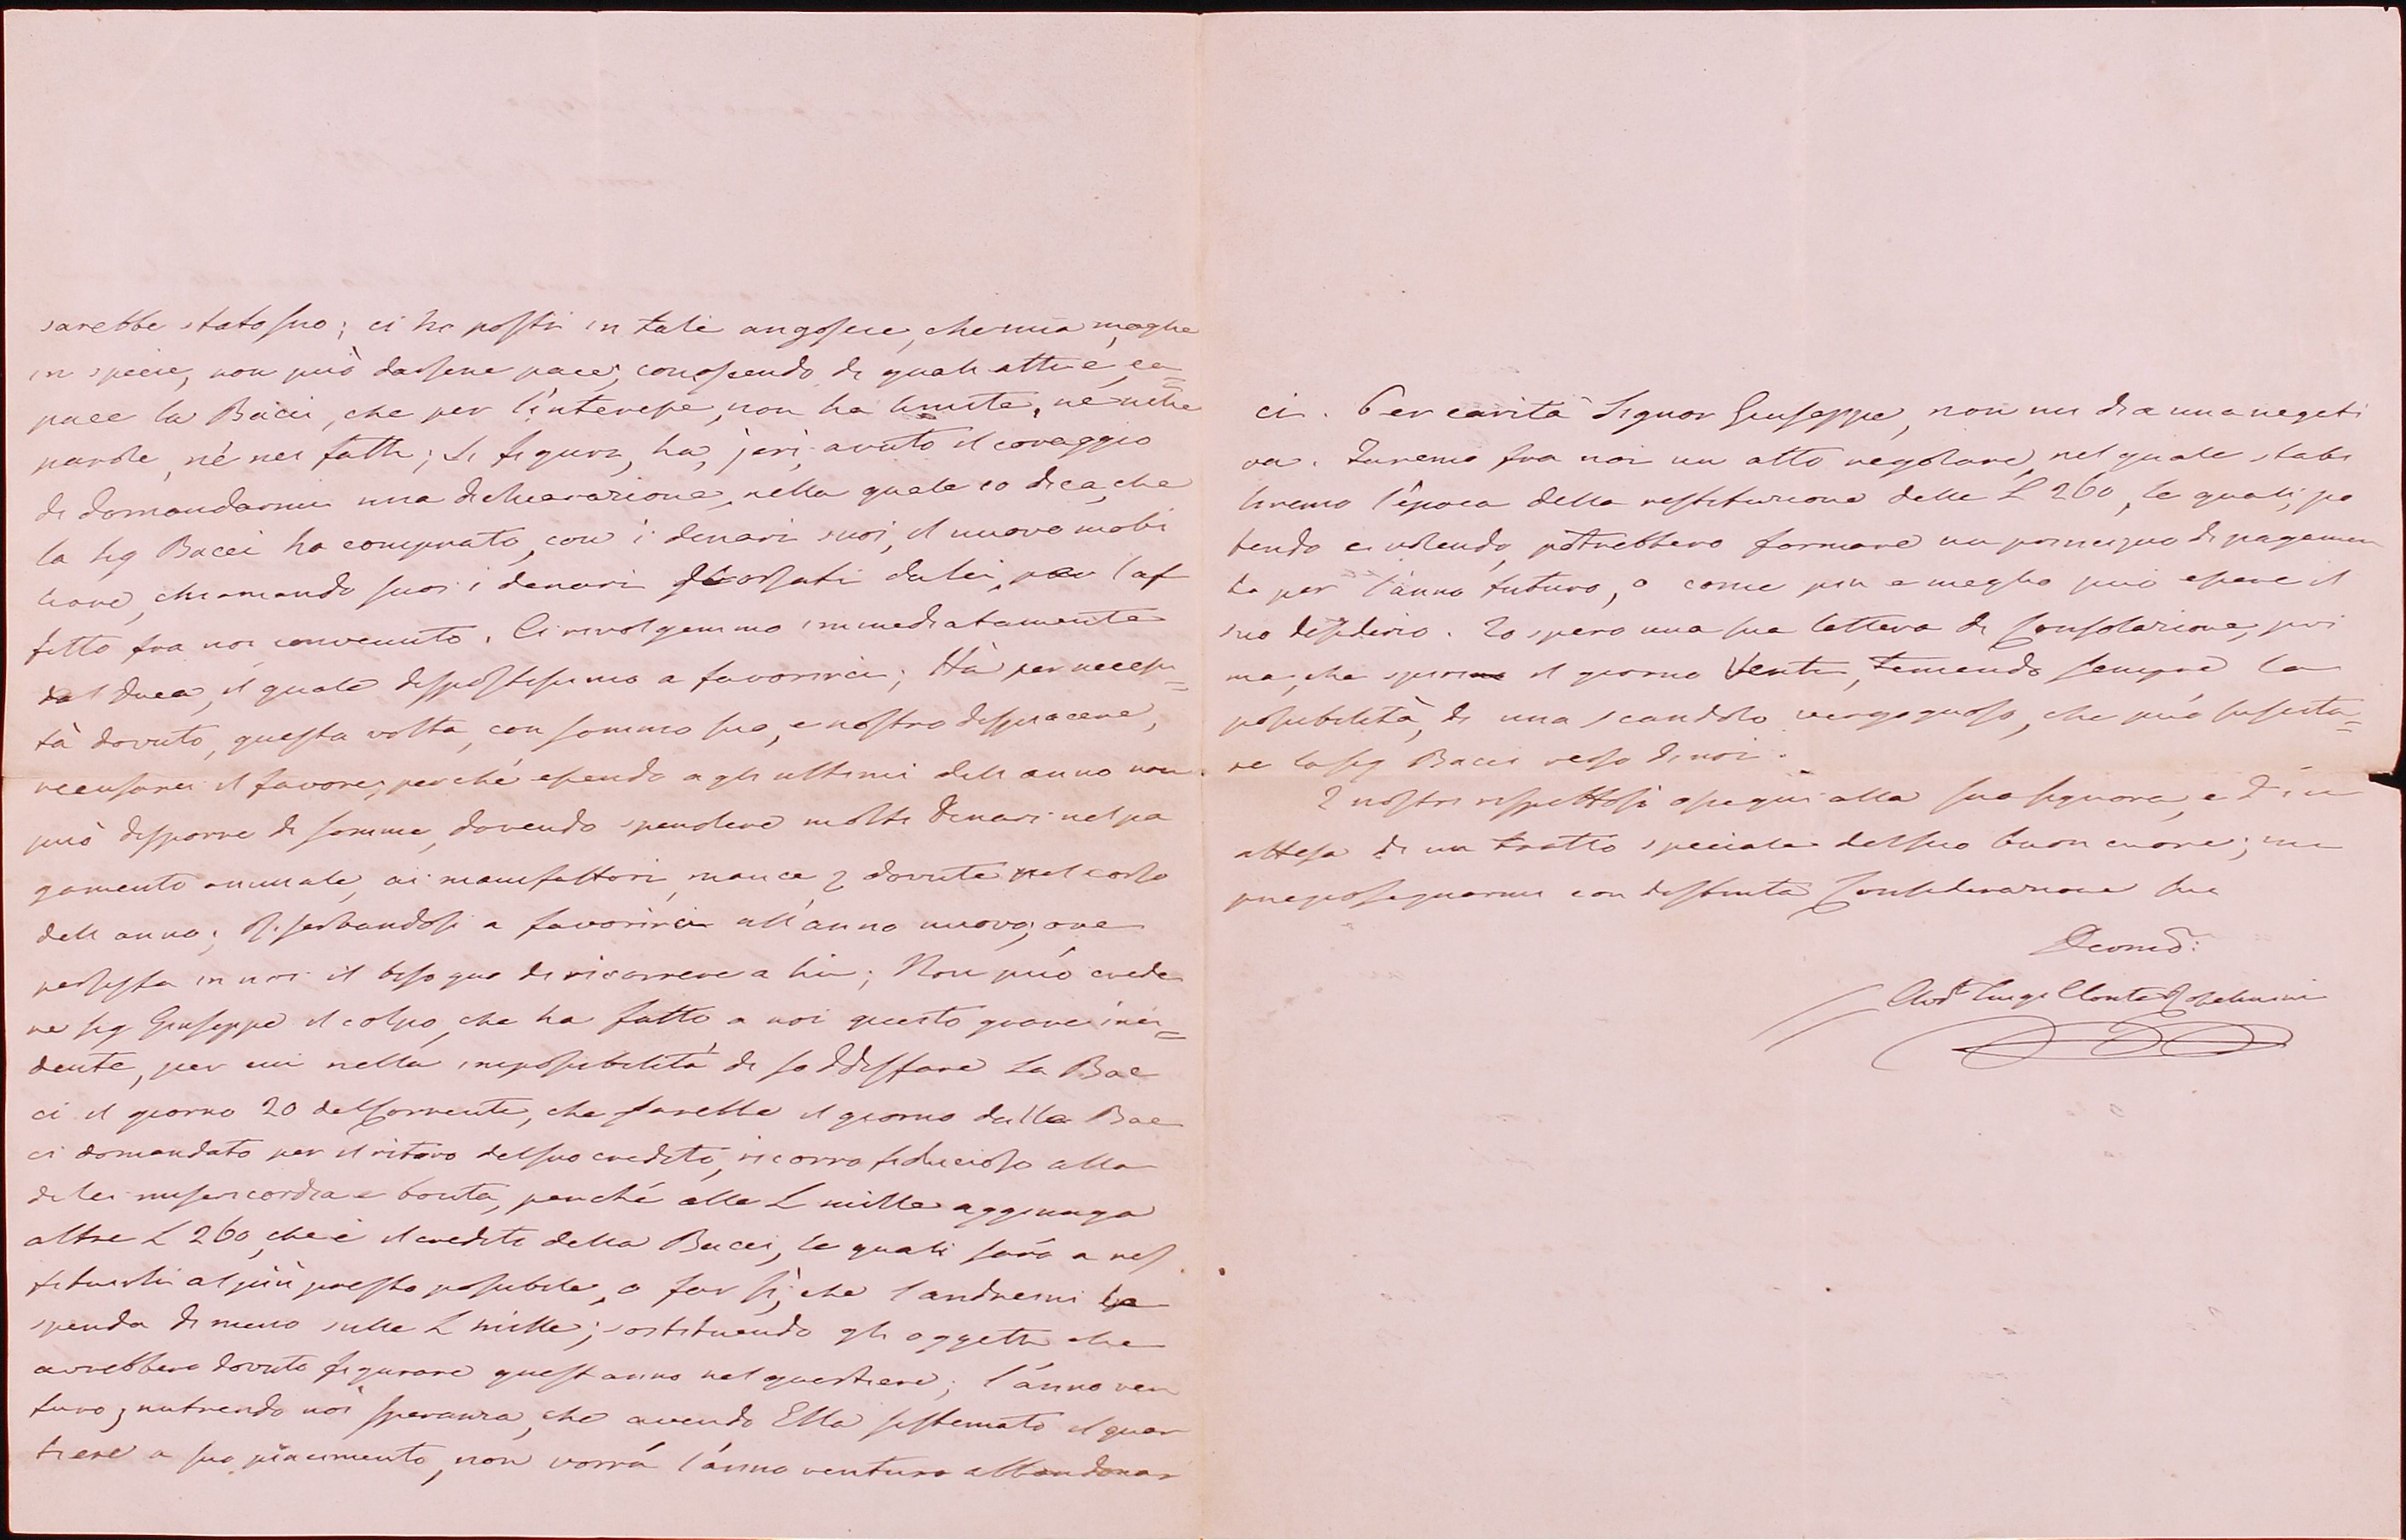 sarebbe stato suo; ci ha posti in tali angoscie, che mia moglie
in specie, non può darsene pace, conoscendo di quali atti è ca=
pace la Bacci, che per l'interesse, non ha limite, né nelle
parole, né nei fatti; si figura, ha, jeri, avuto il coraggio
di domandarmi una dichiarazione, nella quale io dica, che
la Sig Bacci ha comprato, con i denari suoi, il nuovo mobi
liare, chiamando suoi i denari sborsati da lei, per l'af
fitto fra noi convenuto. Ci rivolgemmo immediatamente
dal Duca, il quale dispostissimo a favorirci; Ha per necessi=
tà dovuto, questa volta, con sommo suo, e nostro dispiacere,
recusarci il favore; perché essendo agli ultimi dell anno non
può disporre di somme, dovendo spendere molti denari nel pa
gamento annuale, ai manifattori, mance, dovute nel corso
dell anno; riserbandosi a favorirci all'anno nuovo, ove
persista in noi il bisogno di ricorrere a lui; Non può crede
re Sig Giuseppe il colpo, che ha fatto a noi questo grave inci=
dente, per cui nella impossibilità di soddisfare la Bac
ci il giorno 20 del Corrente, che sarebbe il giorno dalla Bac
ci domandato per il ritiro del suo credito, ricorro fiducioso alla
di lei misericordia e bontà, perché alle L mille aggiunga
altre L 260, che è il credito della Bacci, le quali sarò a res
tituirli al più presto possibile, o far sì, che l'andreini le
spenda di meno sulle L mille; sostituendo gli oggetti che
avrebbero dovuto figurare quest anno nel quartiere; l'anno ven
turo, nutrendo noi speranza, che avendo Ella sistemato il quar
tiere a suo piacimento, non vorrà l'anno venturo abbandonar
ci. Per carità Signor Giuseppe, non mi dia una negati
va. Faremo fra noi un atto regolare, nel quale stabi
liremo l'epoca della restituzione delle L 260, le quali, po
tendo e volendo, potrebbero formare un principio di pagamen
to per l'anno futuro, o come più e meglio può essere il
suo desiderio. Io spero una sua lettera di Consolazione, pri
ma, che spiri il giorno Venti, temendo sempre la
possibilità, di una scandolo vergognoso, che può suscita=
re la Sig Bacci verso di noi.
I nostri rispettosi ossequi alla sua signora, e in
attesa di un tratto speciale del suo buon cuore; mi
pregio segnarmi con distinta Considerazione Suo
Devmo:
Luigi Conte Roselmini